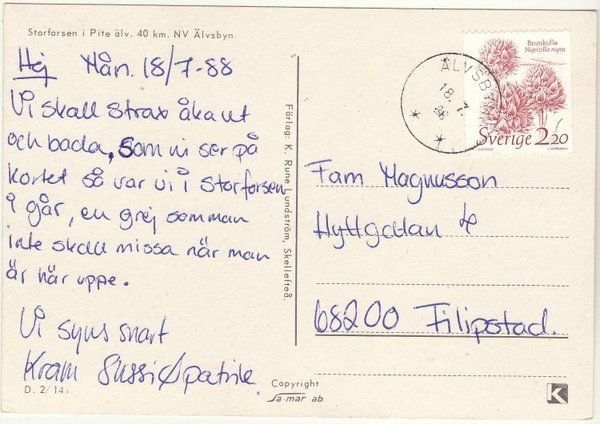 Storforsen i Pite älv. 40 km. NV Älvsbyn.
Hej Mån. 18/7-88
Vi skall strax åka ut
och bada, som ni ser på
kortet så var vi i storforsen
i går, en grej som man
inte skall missa när man
är här uppe.
Vi syns snart
Kram Sussi & patrik
D. 2/141
Förlag: K. Rune Lundström, Skellefteå.
Copyright
Sa-mar ab
ÄLVSB
18. 7.
88
Brunkulla
Nigritella nigra
Sverige 2.20
Fam Magnusson
Hyttgatan
68200 Filipstad.
K